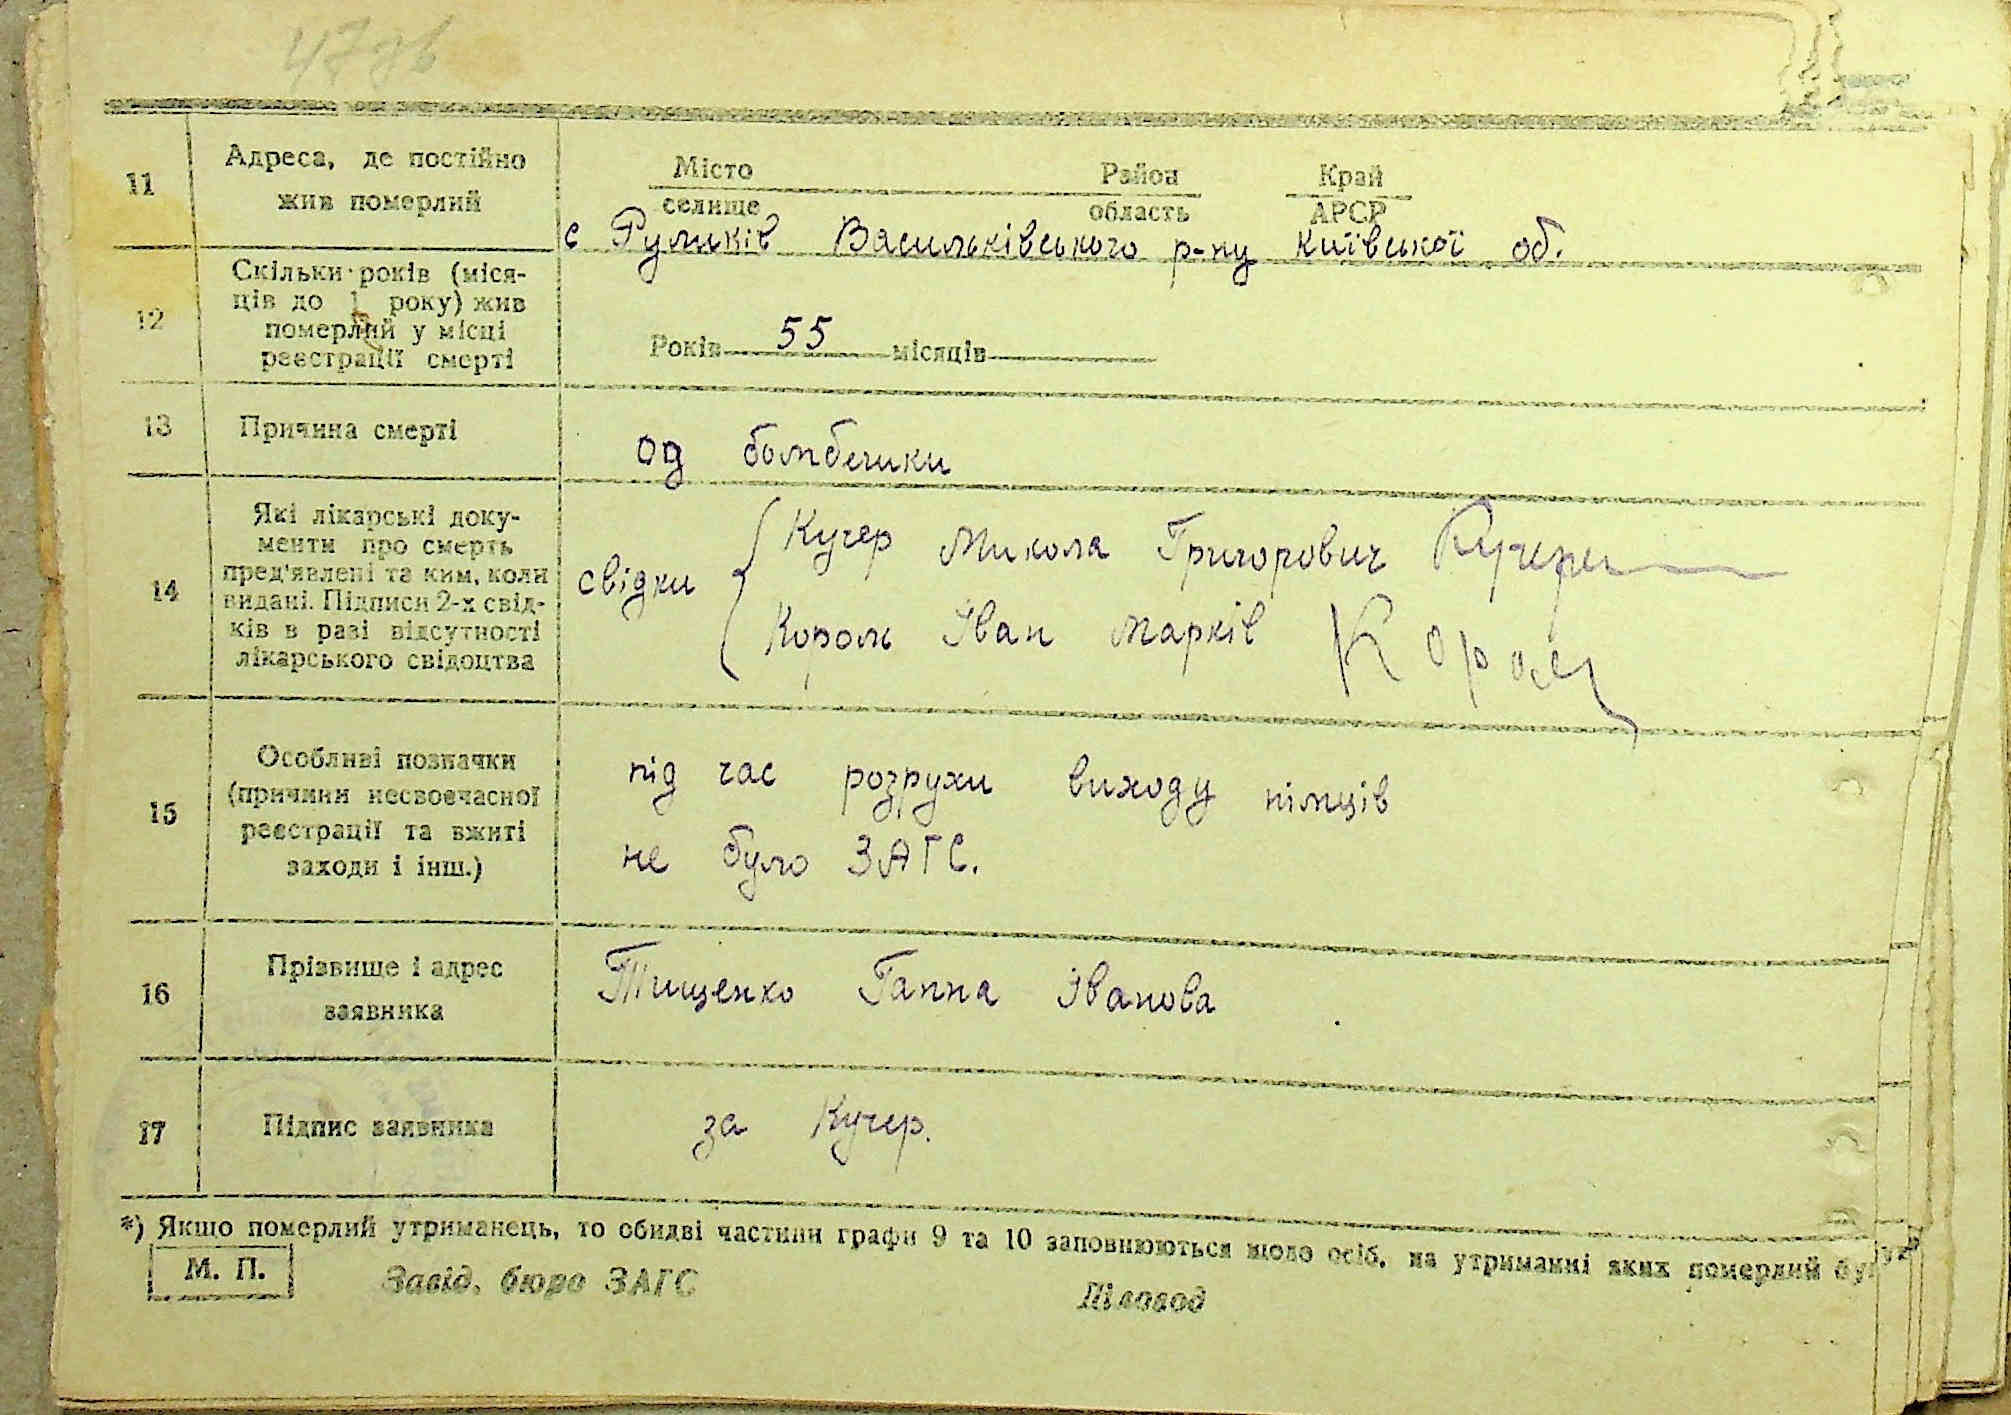 47зв
11
Адреса, де постійно
жив померлий
Місто Район Край
селище область АРСР
с Руликів Васильківського р-ну Київської об.
12
Скільки років (міся-
ців до 1 року) жив
померлий у місці
реєстрації смерті
Років 55 місяців
13
Причина смерті
од бомбежки
14
Які лікарські доку-
менти про смерть
пред'явлені та ким, коли
видані. Підписи 2-х свід-
ків в разі відсутності
лікарського свідоцтва
свідки
Кучер Микола Григорович
Король Іван Марків
15
Особливі позначки
(причини несвоєчасної
реєстрації та вжиті
заходи і інш.)
під час розрухи виходу німців
не було ЗАГС.
16
Прізвище і адрес
заявника
Тищенко Ганна Іванова
17
Підпис заявника
за Кучер.
*) Якщо померлий утриманець, то обидві частини графи 9 та 10 заповнюються щодо осіб, на утриманні яких померлий
М. П.
Завід. бюро ЗАГС
Діловод